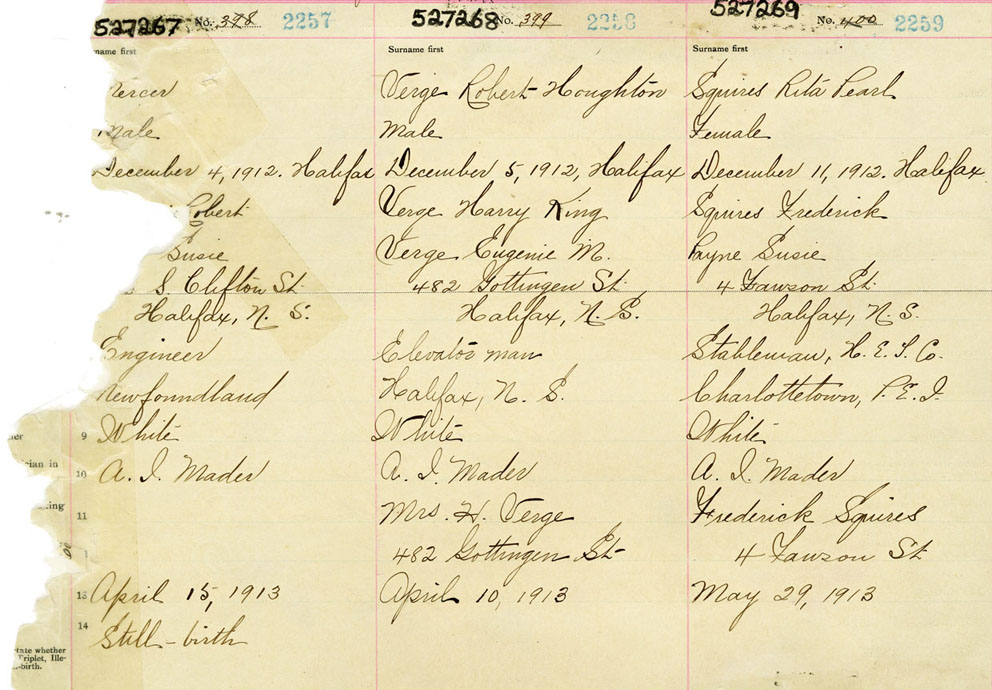 527267 No. 398 2257
name first
Mercer
Male
December 4, 1912. Halifax
Robert
Susie
8 Clifton St.
Halifax, N. S.
Engineer
Newfoundland
9 White
10 A. I. Mader
11
13 April 15, 1913
14 Still-birth
ician in
ing
tate whether
Triplet, Ille-
-birth.
527268 No. 399 2258
Surname first
Verge Robert Houghton
Male
December 5, 1912, Halifax
Verge Harry King
Verge Eugenie M.
482 Gottingen St.
Halifax, N. S.
Elevator man
Halifax, N. S.
White
A. I. Mader
Mrs. H. Verge
482 Gottingen St
April 10, 1913
527269 No. 400 2259
Surname first
Squires Rita Pearl
Female
December 11, 1912. Halifax
Squires Frederick
Payne Susie
4 Fawson St.
Halifax, N. S.
Stableman, H. E. T. Co.
Charlottetown, P. E. I.
White
A. I. Mader
Frederick Squires
4 Fawson St
May 29, 1913